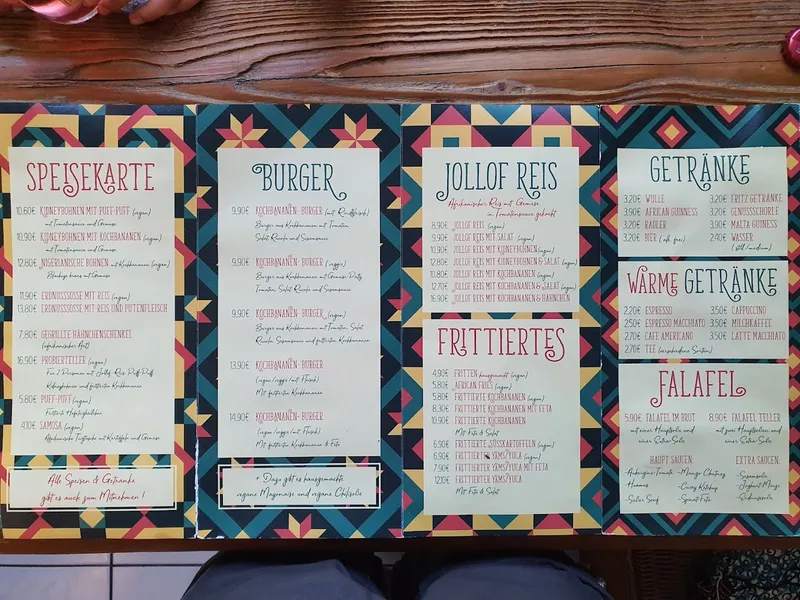 SPEISEKARTE
10.60€ KIDNEYBOHNEN MIT PUFF-PUFF (vegan)
mit Tomatensauce und Gemüse
10.90€ KIDNEYBOHNEN MIT KOCHBANANEN (vegan)
mit Tomatensauce und Gemüse
12.80€ NIGERIANISCHE BOHNEN mit Kochbananen (vegan)
mit Gemüse
11.90€ ERDNUSSSOSSE MIT REIS (vegan)
13.80€ ERDNUSSSOSSE MIT REIS UND PUTENFLEISCH
7.80€ GEGRILLTE HÄHNCHENSCHENKEL
(afrikanischer Art)
16.90€ PROBIERTELLER (vegan)
Für 2 Personen mit Jollof Reis Puff-Puff
Kidneybohnen und frittierten Kochbananen
5.80€ PUFF-PUFF (vegan)
Frittierte Hefeteigbällchen
4.10€ SAMOSA (vegan)
Afrikanische Teigtasche mit Kartoffeln und Gemüse
Alle Speisen & Getränke
gibt es auch zum Mitnehmen!
BURGER
9.90€ KOCHBANANEN-BURGER (mit Rindfleisch)
Burger aus Kochbananen mit Tomaten,
Salat Rucola und Sesamsauce
9.90€ KOCHBANANEN-BURGER (veggie)
Burger aus Kochbananen mit Gemüse-Patty,
Tomaten, Salat Rucola und Sesamsauce
9.90€ KOCHBANANEN-BURGER (vegan)
Burger aus Kochbananen mit Tomaten, Salat
Rucola, Sesamsauce und frittierten Kochbananen
13.90€ KOCHBANANEN-BURGER
(vegan/veggie/mit Fleisch)
Mit frittierten Kochbananen
14.90€ KOCHBANANEN-BURGER
(vegan/veggie/mit Fleisch)
Mit frittierten Kochbananen & Feta
+ Dazu gibt es hausgemachte
vegane Mayonaise und vegane Chilisoße
JOLLOF REIS
Afrikanischer Reis mit Gemüse
in Tomatensauce gekocht
8.90€ JOLLOF REIS (vegan)
9.90€ JOLLOF REIS MIT SALAT (vegan)
10.90€ JOLLOF REIS MIT KIDNEYBOHNEN (vegan)
12.60€ JOLLOF REIS MIT KIDNEYBOHNEN & SALAT (vegan)
10.80€ JOLLOF REIS MIT KOCHBANANEN (vegan)
12.70€ JOLLOF REIS MIT KOCHBANANEN & SALAT (vegan)
16.90€ JOLLOF REIS MIT KOCHBANANEN & HÄHNCHEN
FRITTIERTES
4.90€ FRITTEN hausgemacht (vegan)
5.80€ AFRICAN FRIES (vegan)
5.80€ FRITTIERTE KOCHBANANEN (vegan)
8.30€ FRITTIERTE KOCHBANANEN MIT FETA
10.90€ FRITTIERTE KOCHBANANEN
Mit Feta & Salat
6.90€ FRITTIERTE SÜSSKARTOFFELN (vegan)
6.90€ FRITTIERTER YAMS/YUCA (vegan)
7.90€ FRITTIERTER YAMS/YUCA MIT FETA
12.10€ FRITTIERTER YAMS/YUCA
Mit Feta & Salat
GETRÄNKE
3.20€ WULLE
3.90€ AFRICAN GUINNESS
3.20€ RADLER
3.20€ BIER (alk. frei)
3.20€ FRITZ GETRÄNKE
3.20€ GENUSSSCHORLE
3.90€ MALTA GUINESS
2.40€ WASSER
(still/medium)
WARME GETRÄNKE
2.20€ ESPRESSO
2.50€ ESPRESSO MACCHIATO
2.70€ CAFE AMERICANO
2.70€ TEE (verschiedene Sorten)
3.50€ CAPPUCCINO
3.50€ MILCHKAFFEE
3.50€ LATTE MACCHIATO
FALAFEL
5.90€ FALAFEL IM BROT
mit einer Hauptsoße und
einer Extra-Soße
8.90€ FALAFEL TELLER
mit zwei Hauptsoßen und
einer Extra-Soße
HAUPT SAUCEN
-Aubergine-Tomate
-Hummus
-Süßer Senf
-Mango Chutney
-Curry Ketchup
-Spinat-Feta
EXTRA SAUCEN
-Sesamsoße
-Joghurt-Mango